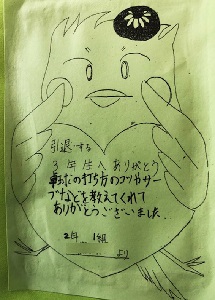 引退する
3年生へ ありがとう
球の打ち方のコツやサー
ブなどを教えてくれて
ありがとうございました
2年 1組
より